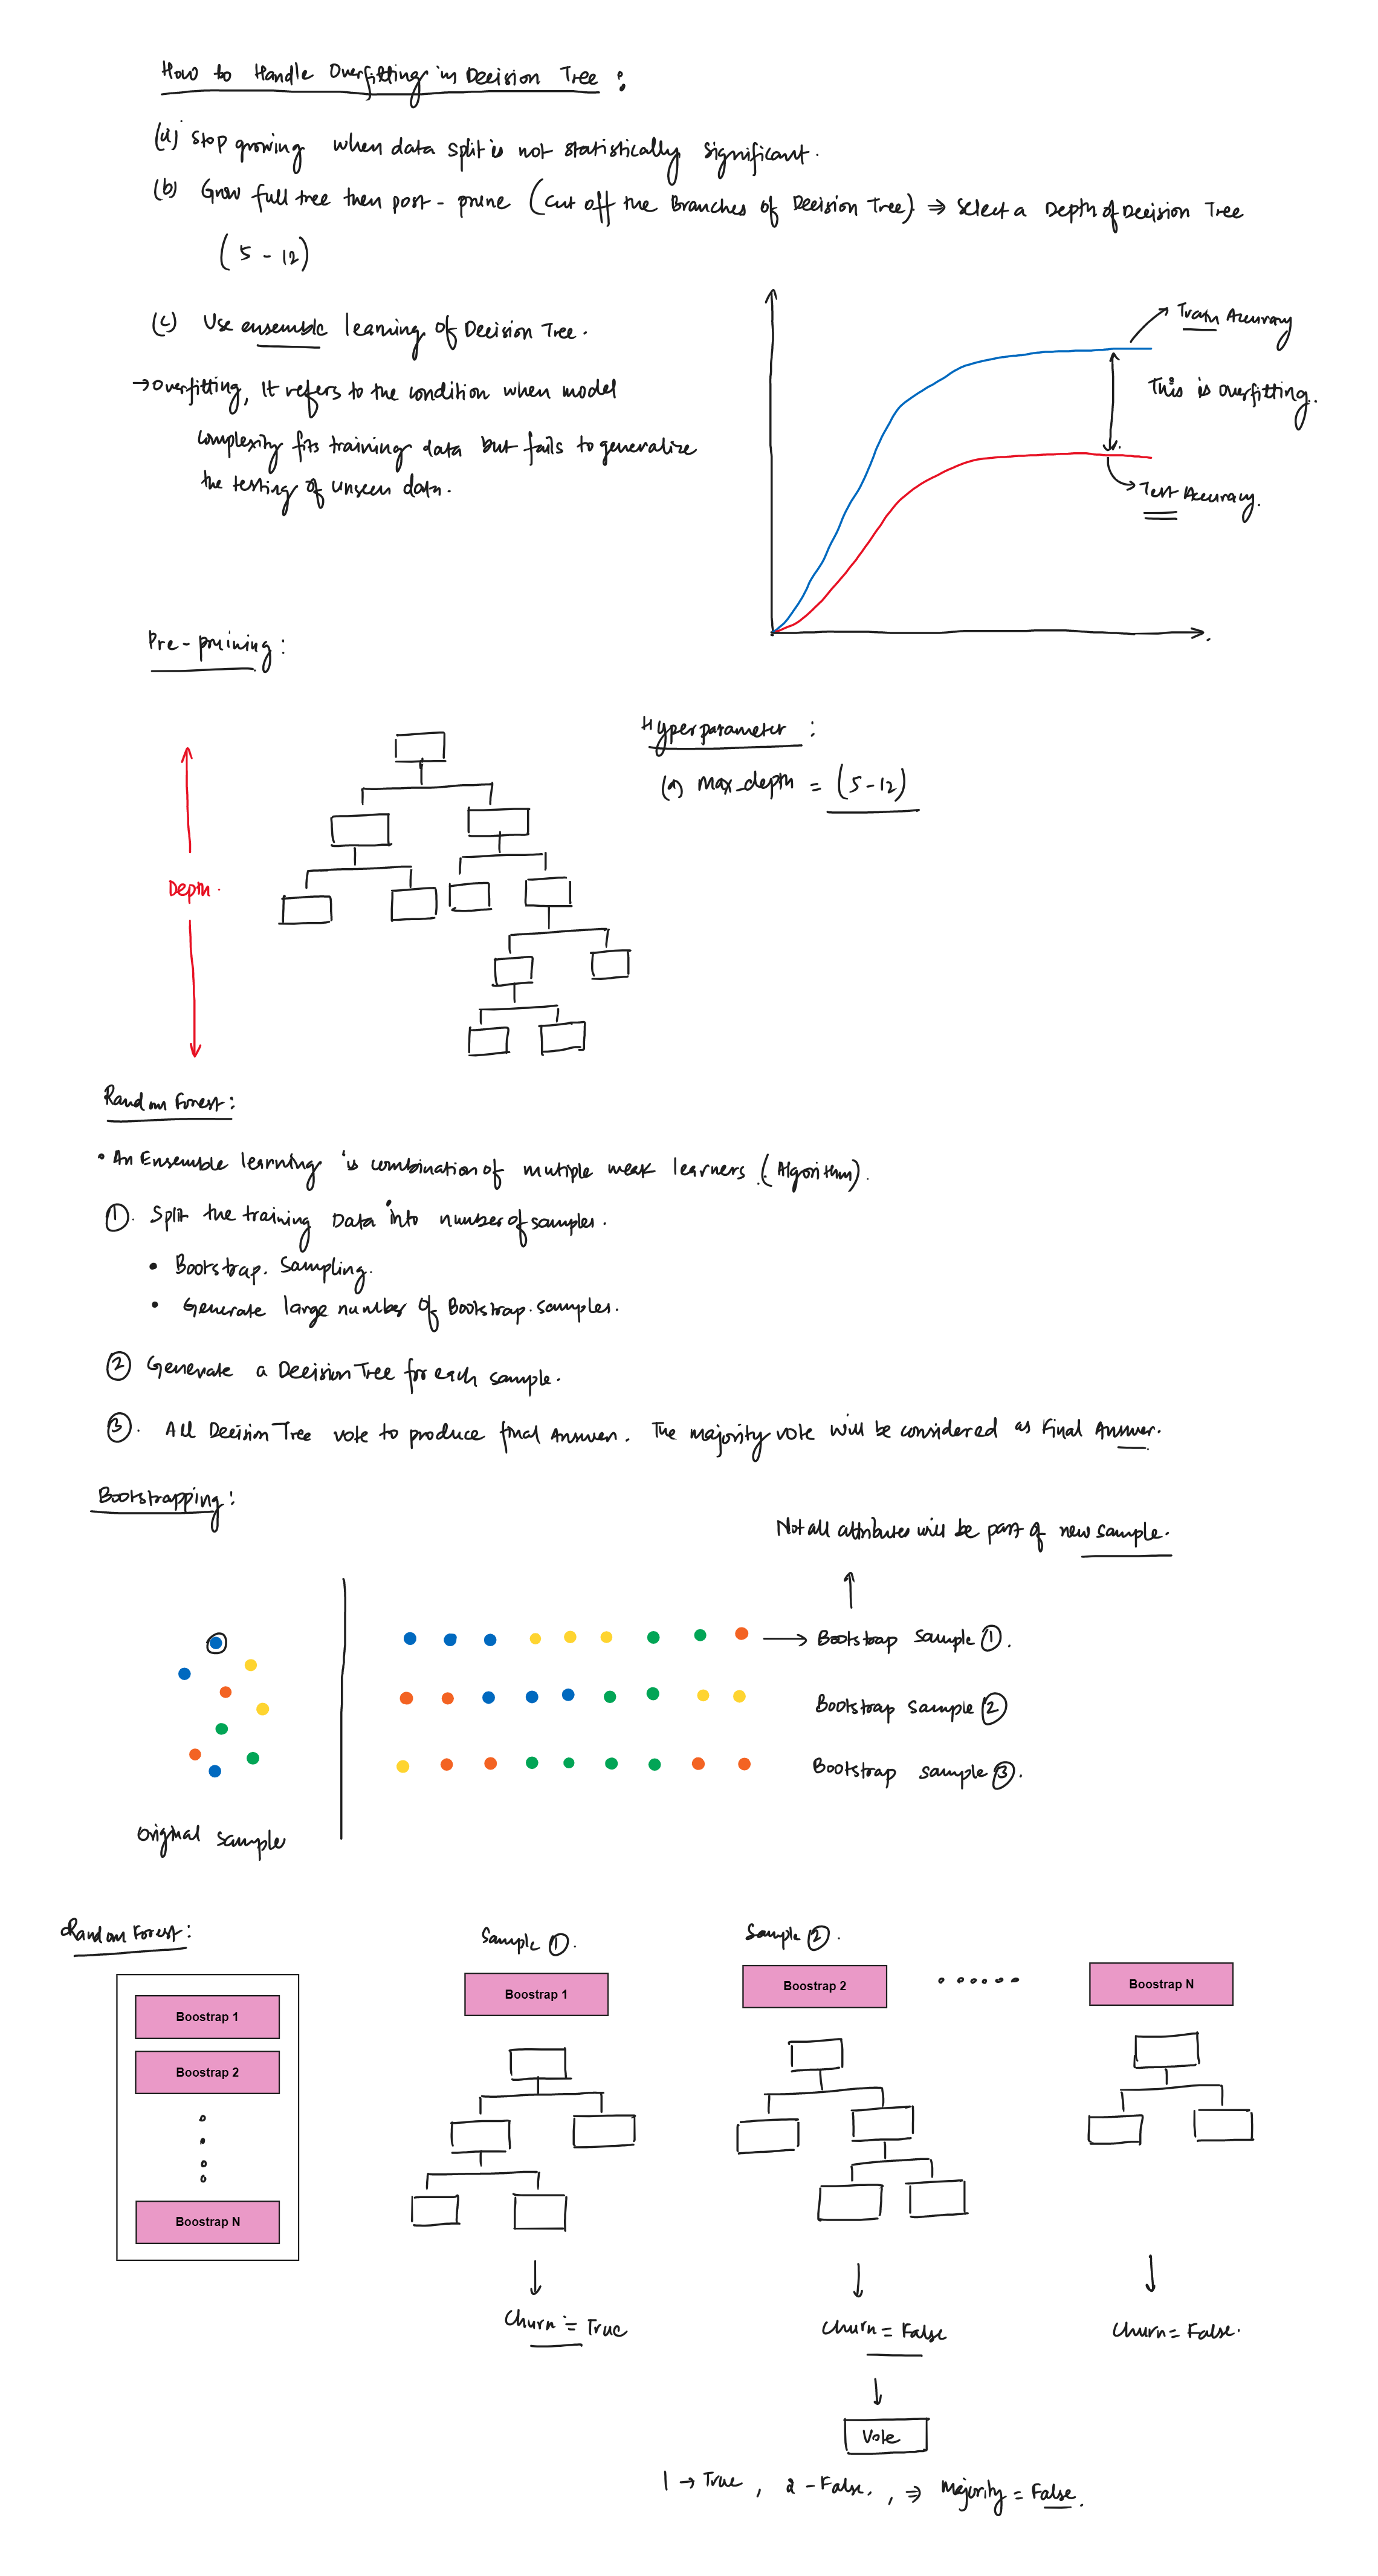 How to Handle Overfitting in Decision Tree :
(a) Stop growing when data split is not statistically significant.
(b) Grow full tree then post-prune (Cut off the Branches of Decision Tree) ⇒ Select a Depth of Decision Tree
(5 - 12)
(c) Use ensemble learning of Decision Tree.
→ Overfitting, It refers to the condition when model
complexity fits training data but fails to generalize
the testing of unseen data.
Train Accuracy
This is overfitting.
Test Accuracy.
Pre-pruning :
Depth.
Hyperparameter :
(a) max_depth = (5-12)
Random Forest :
• An Ensemble learning is combination of mutiple weak learners. (Algorithm).
①. Split the training Data into number of samples.
• Bootstrap. Sampling.
• Generate large number of Bootstrap. samples.
② Generate a Decision Tree for each sample.
③. All Decision Tree vote to produce final Answer. The majority vote will be considered as Final Answer.
Bootstrapping :
Not all attributes will be part of new sample.
→ Bootstrap Sample ①.
Bootstrap Sample ②
Bootstrap Sample ③.
Original Sample
Random Forest :
Boostrap 1
Boostrap 2
Boostrap N
Sample ①.
Boostrap 1
Sample ②.
Boostrap 2
Boostrap N
Churn = True
Churn = False
Churn = False.
Vote
1 → True, 2 - False., ⇒ Majority = False.